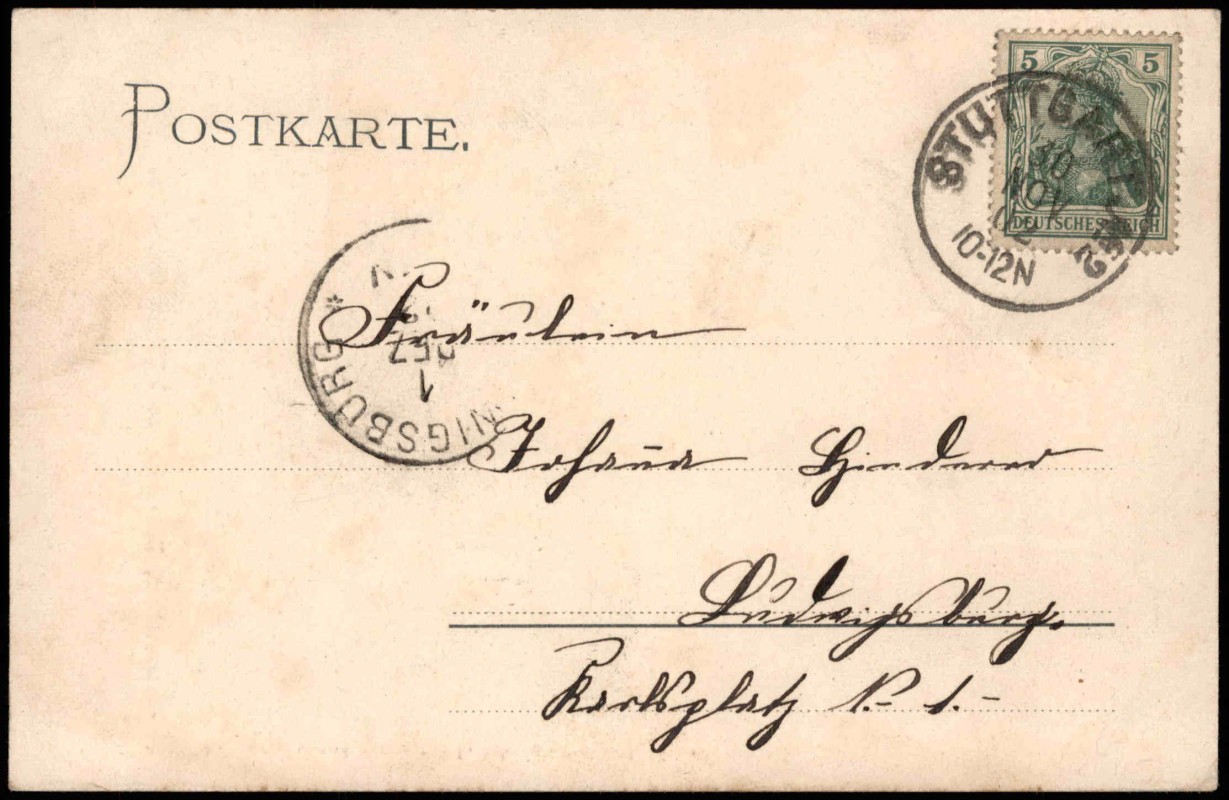 POSTKARTE.
5 5
DEUTSCHES REICH
STUTTGART
10
NOV
02
10-12N
NIGSBURG *
1
Fräulein
Johan̄a Hinderer
Ludwigsburg.
Karlsplatz N. 1.-